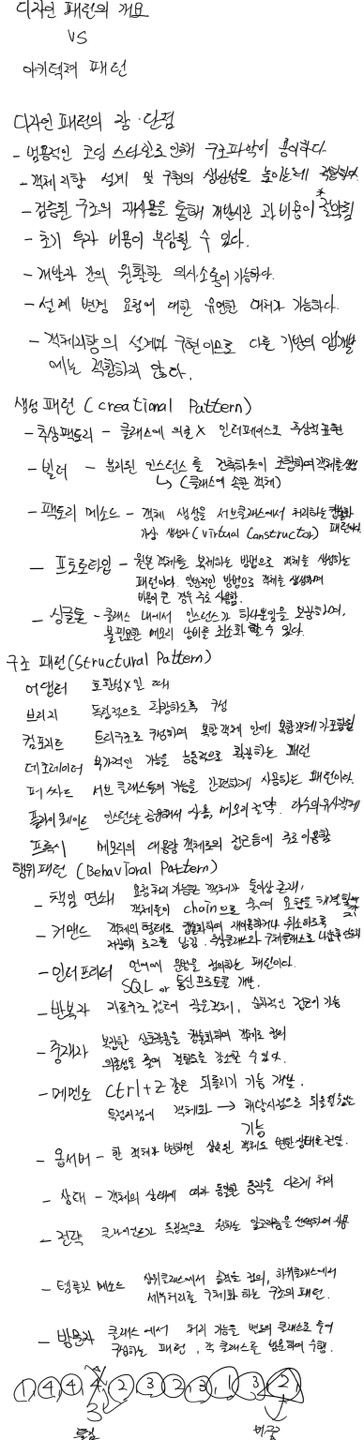 디자인 패턴의 개요
VS
아키텍처 패턴
디자인 패턴의 장·단점
- 범용적인 코딩 스타일로 인해 구조파악이 용이하다.
- 객체지향 설계 및 구현의 생산성을 높이는데 적합하다.
- 검증된 구조의 재사용을 통해 개발시간과 비용이 절약됨
- 초기 투자 비용이 부담될 수 있다.
- 개발자 간의 원활한 의사소통이 가능하다.
- 설계 변경 요청에 대한 유연한 대처가 가능하다.
- 객체지향의 설계와 구현이므로 다른 기반의 앱개발
에는 적합하지 않다.
생성 패턴 (creational Pattern)
- 추상팩토리 - 클래스에 의존X 인터페이스로 추상적표현
- 빌더 - 분리된 인스턴스를 건축하듯이 조합하여 객체를 생성
↳ (클래스에 속한 객체)
- 팩토리 메소드 - 객체 생성을 서브클래스에서 처리하는 캡슐화
가상 생성자 (Virtual Constructor) 패턴
- 프토로타입 - 원본 객체를 복제하는 방법으로 객체를 생성하는
패턴이다. 일반적인 방법으로 객체를 생성하며
비용이 큰 경우 주로 사용함.
- 싱글톤 - 클래스 내에서 인스턴스가 하나뿐임을 보장하며,
불필요한 메모리 낭비를 최소화 할 수 있다.
구조 패턴 (Structural Pattern)
어댑터 호환성X일 때
브리지 독립적으로 확장하도록 구성
컴포지트 트리구조로 구성하여 복합객체 안에 복합객체가 포함될
데코레이터 부가적인 기능을 능동적으로 확장하는 패턴
퍼싸드 서브 클래스들의 기능을 간편하게 사용하는 패턴이다.
플라이웨이트 인스턴스를 공유해서 사용, 메모리 절약. 다수의 유사객체
프록시 메모리의 대용량 객체로의 접근등에 주로 이용함
행위패턴 (Behavioral Pattern)
- 책임 연쇄 요청처리 가능한 객체가 둘이상 존재,
객체들이 chain으로 묶여 요청을 해결할때까지
- 커맨드 객체의 형태로 캡슐화하여 재이용하거나 취소하도록
저장해 로그를 남김. 추상클래스와 구체클래스로 나눔
- 인터프리터 언어에 문법을 정의하는 패턴이다.
SQL or 통신프로토콜 개발.
- 반복자 자료구조 접근이 잦은객체, 순차적인 접근이 가능
- 중재자 복잡한 상호작용을 캡슐화하여 객체로 정의
의존성을 줄여 결합도를 감소할 수 있다.
- 메멘토 ctrl+z 같은 되돌리기 기능 개발.
특정시점에 객체화 → 해당시점으로 되돌릴 수 있는
기능
- 옵서버 - 한 객체가 변하면 상속된 객체로 변한상태를 전달.
- 상태 - 객체의 상태에 따라 동일한 동작을 다르게 처리
- 전략 클라이언트가 독립적으로 원하는 알고리즘을 선택하여 사용
- 템플릿 메소드 상위클래스에서 골격을 정의, 하위클래스에서
세부처리를 구체화 하는 구조의 패턴.
- 방문자 클래스에서 처리 기능을 별도의 클래스로 두어
구성하는 패턴, 각 클래스를 방문하여 수행.
1 4 4 4 2 3 2 3 1 3 2
3
틀림